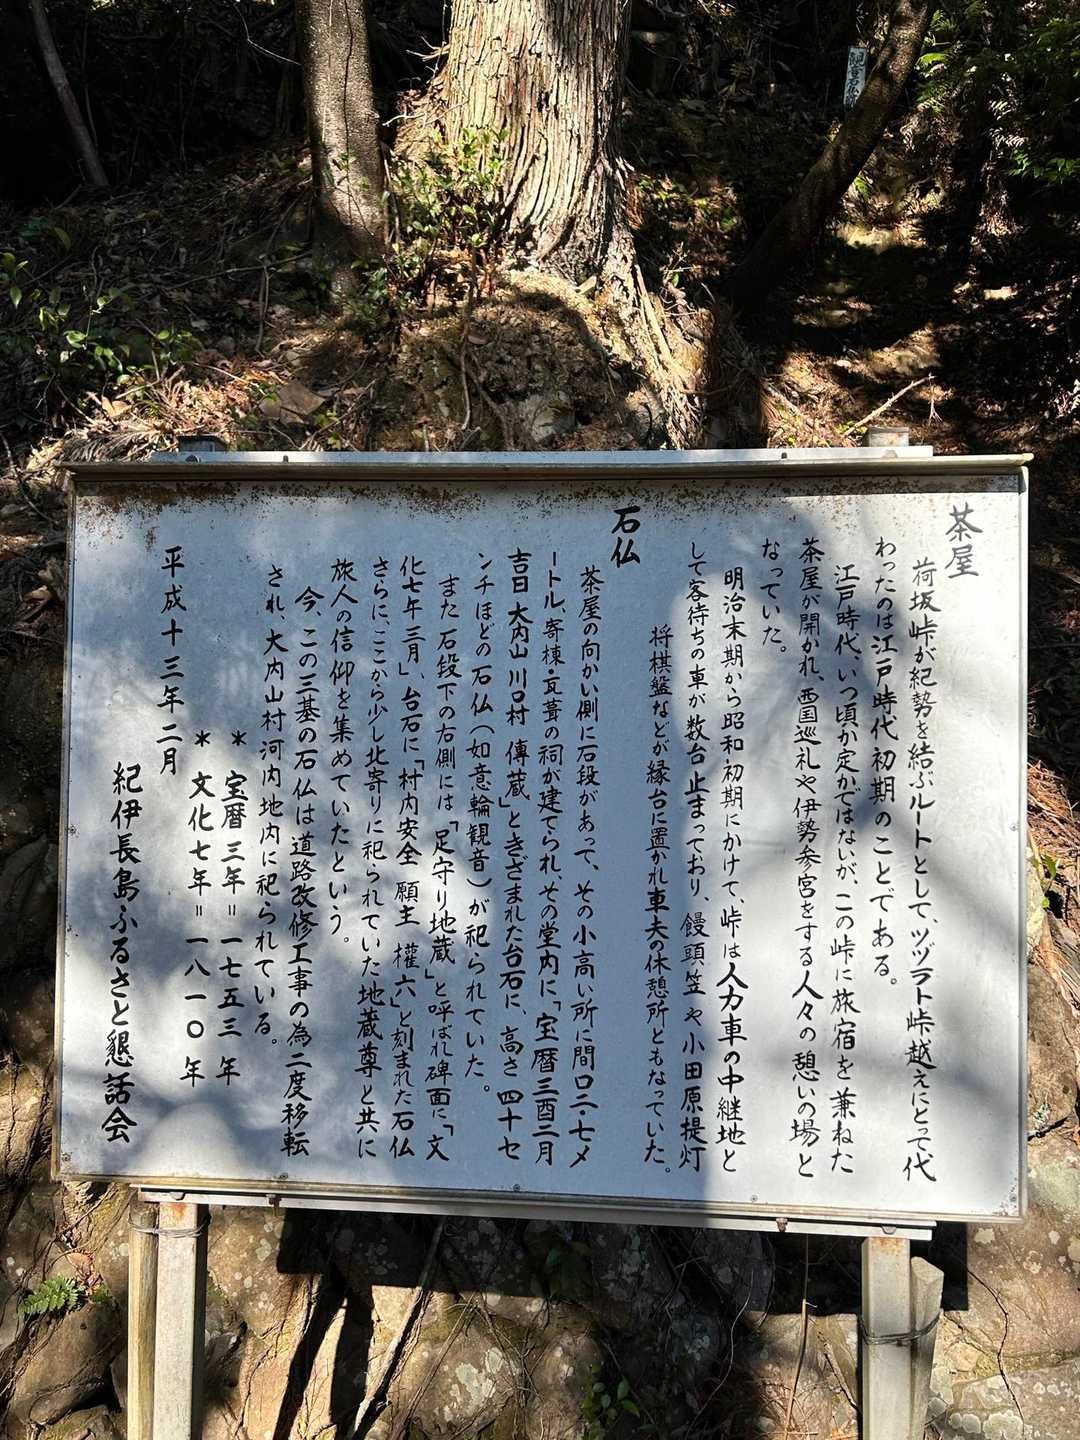 茶屋
荷坂峠が紀勢を結ぶルートとして、ツヅラト峠越えにとって代
わったのは江戸時代初期のことである。
江戸時代、いつ頃か定かではないが、この峠に旅宿を兼ねた
茶屋が開かれ、西国巡礼や伊勢参宮をする人々の憩いの場と
なっていた。
明治末期から昭和初期にかけて、峠は人力車の中継地と
して客待ちの車が数台止まっており、饅頭笠や小田原提灯
将棋盤などが縁台に置かれ車夫の休憩所ともなっていた。
石仏
茶屋の向かい側に石段があって、その小高い所に間口二・七メ
ートル、寄棟・瓦葺の祠が建てられ、その堂内に「宝暦三酉二月
吉日 大内山 川口村 傳蔵」ときざまれた台石に、高さ四十セ
ンチほどの石仏(如意輪観音)が祀られていた。
また石段下の右側には「足守り地蔵」と呼ばれ碑面に「文
化七年三月」、台石に「村内安全 願主 權六」と刻まれた石仏
さらに、ここから少し北寄りに祀られていた地蔵尊と共に
旅人の信仰を集めていたという。
今、この三基の石仏は道路改修工事の為二度移転
され、大内山村河内地内に祀られている。
＊宝暦三年＝一七五三年
＊文化七年＝一八一〇年
平成十三年二月
紀伊長島ふるさと懇話会